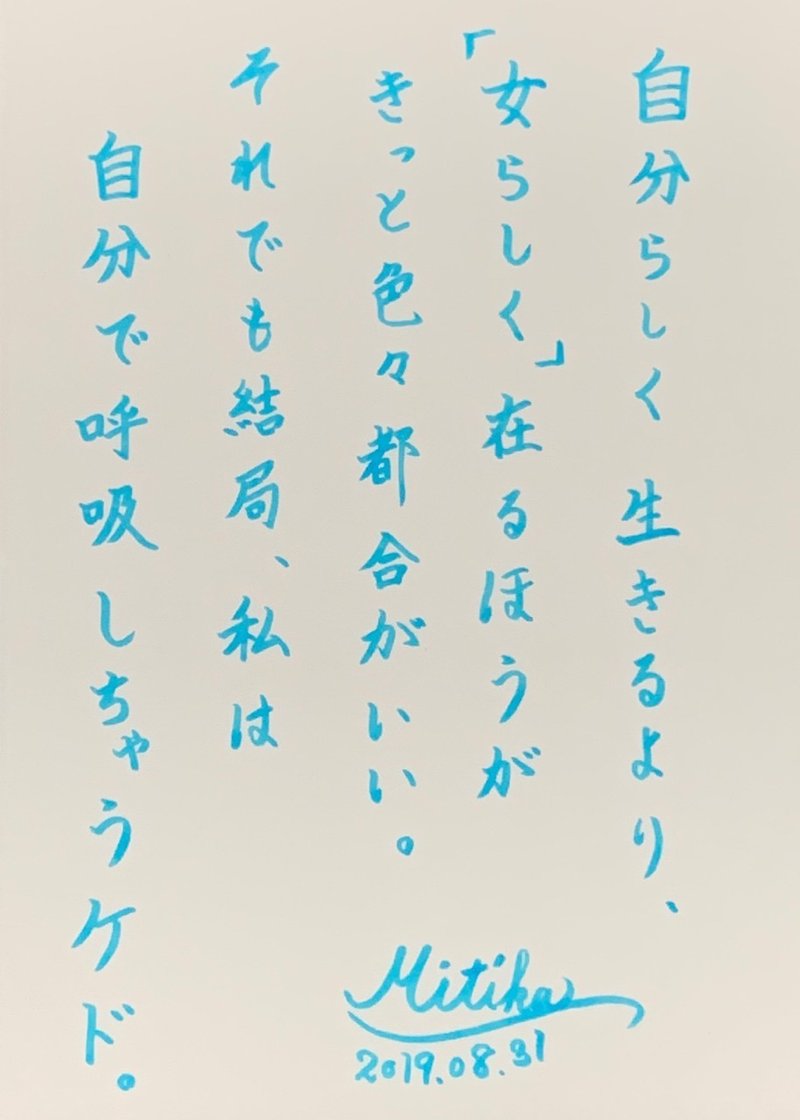 自分らしく生きるより、
「女らしく」在るほうが
きっと色々都合がいい。
それでも結局、私は
自分で呼吸しちゃうケド。
Mitika
2019.08.31